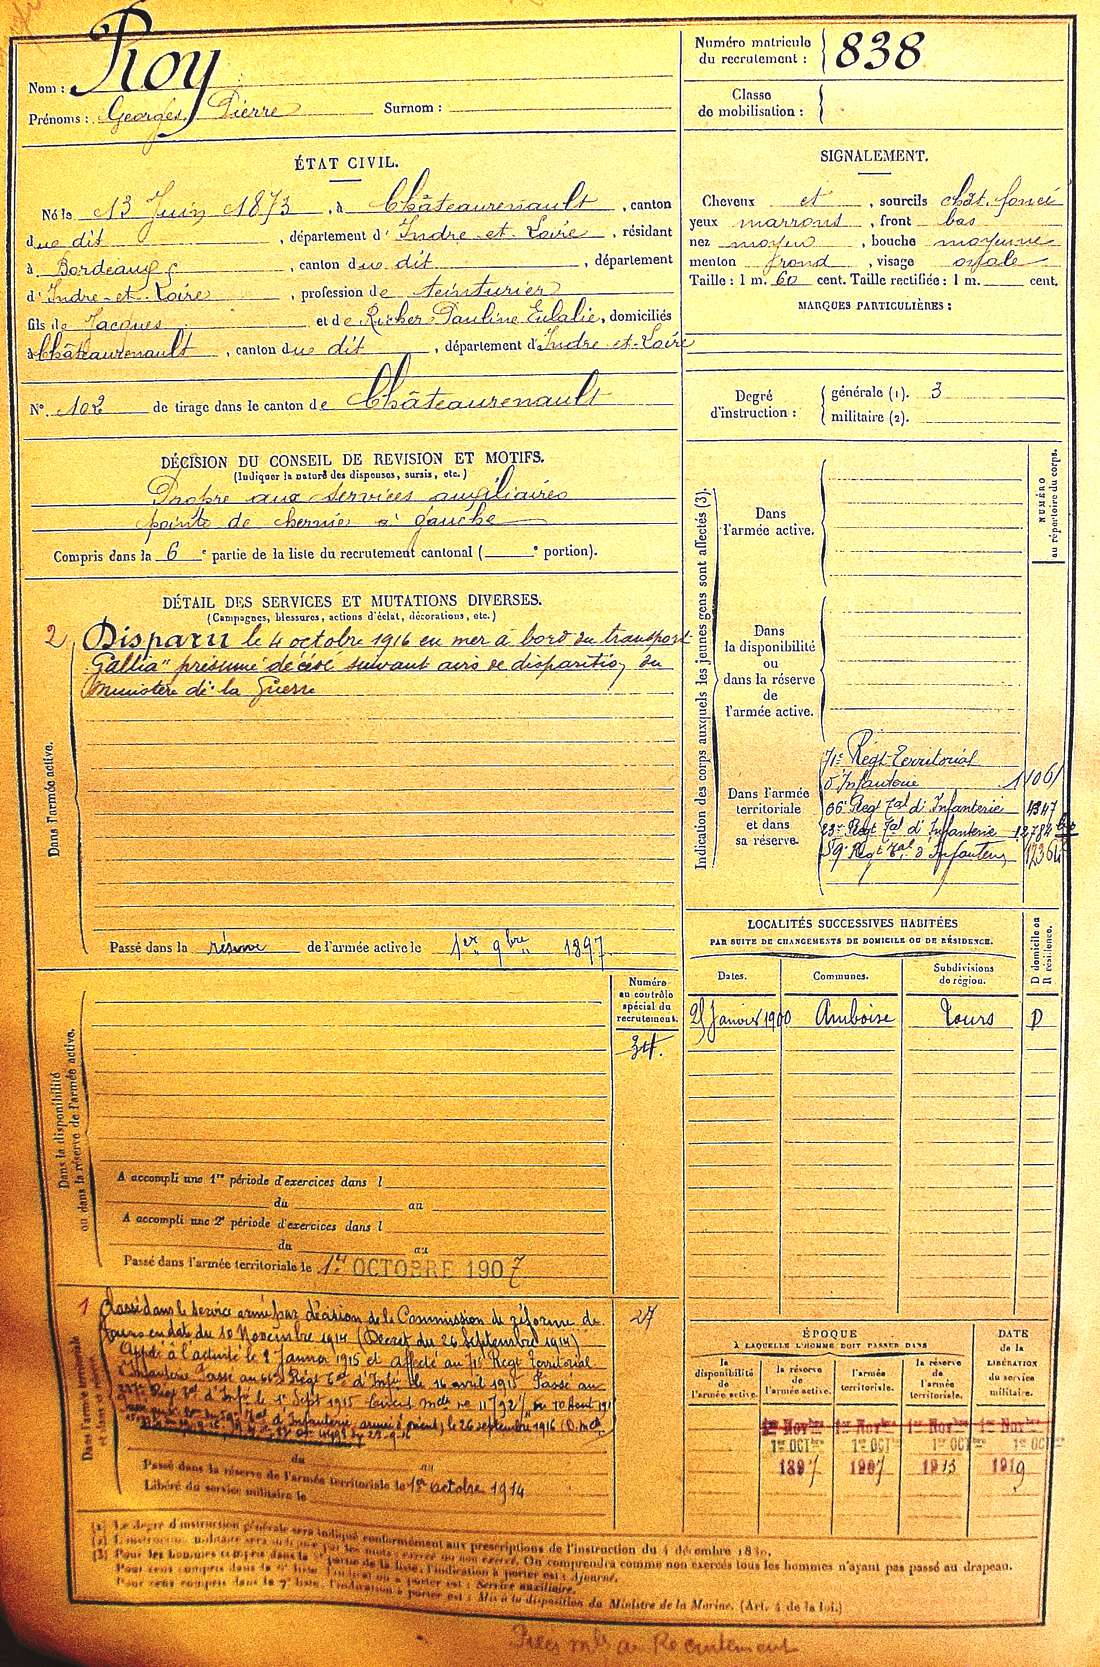 Nom : Roy
Prénoms : Georges Pierre Surnom :
Numéro matricule
du recrutement : 838
Classe
de mobilisation :
ÉTAT CIVIL.
Né le 13 Juin 1873, à Châteaurenault, canton
du dit, département d'Indre-et-Loire, résidant
à Bordeaux, canton du dit, département
d'Indre-et-Loire, profession de teinturier
fils de Jacques et de Richer Pauline Eulalie, domiciliés
à Châteaurenault, canton du dit, département d'Indre-et-Loire
N° 102 de tirage dans le canton de Châteaurenault
SIGNALEMENT.
Cheveux et, sourcils chât. foncé
yeux marrons, front bas
nez moyen, bouche moyenne
menton rond, visage ovale
Taille : 1 m. 60 cent. Taille rectifiée : 1 m. cent.
MARQUES PARTICULIÈRES :
Degré
d'instruction :
générale (1). 3
militaire (2).
DÉCISION DU CONSEIL DE REVISION ET MOTIFS.
(Indiquer la nature des dispenses, sursis, etc.)
Propre aux services auxiliaires
pointe de hernie à gauche
Compris dans la 6e partie de la liste du recrutement cantonal ( e portion).
DÉTAIL DES SERVICES ET MUTATIONS DIVERSES.
(Campagnes, blessures, actions d'éclat, décorations, etc.)
Dans l'armée active.
2 Disparu le 4 octobre 1916 en mer à bord du transport
Gallia" présumé décédé suivant avis de disparition du
Ministère de la Guerre
Passé dans la réserve de l'armée active le 1er 9bre 1897
Indication des corps auxquels les jeunes gens sont affectés (3).
NUMÉRO
au répertoire du corps.
Dans
l'armée active.
Dans
la disponibilité
ou
dans la réserve
de
l'armée active.
Dans l'armée
territoriale
et dans
sa réserve.
71e Régt Territorial
d'Infanterie 1106
66e Regt Tal d'Infanterie 4347
23e Regt Tal d'Infanterie 12784
59e Regt Tal d'Infanterie 12364
LOCALITÉS SUCCESSIVES HABITÉES
PAR SUITE DE CHANGEMENTS DE DOMICILE OU DE RÉSIDENCE.
D domicile ou
R résidence.
Dates. Communes. Subdivisions
de région.
Janvier 1900 Amboise Tours D
Dans la disponibilité
ou dans la réserve de l'armée active.
Numéro
au contrôle
spécial du
recrutement.
34.
A accompli une 1re période d'exercices dans l
du au
A accompli une 2e période d'exercices dans l
du au
Passé dans l'armée territoriale le 1er OCTOBRE 1907
Dans l'armée territoriale
1 Classé dans le service armé par décision de la Commission de réforme de 27
Tours en date du 10 Novembre 1914 (Décret du 26 Septembre 1914)
Appelé à l'activité le 2 Janvier 1915 et affecté au 71e Regt Territorial
d'Infanterie Passé au 66e Régt Tal d'Infie le 16 avril 1915 Passé au
Regt Tal d'Infie le 1er Sept 1915 du 10 Aout 191
Tal d'Infanterie, armée d'orient, le 26 septembre 1916
du au
Passé dans la réserve de l'armée territoriale le 1er octobre 1914
Libéré du service militaire le
ÉPOQUE
À LAQUELLE L'HOMME DOIT PASSER DANS
DATE
DE LA
LIBÉRATION
du service
militaire.
la
disponibilité
de
l'armée active.
la réserve
de
l'armée active.
l'armée
territoriale.
la réserve
de
l'armée
territoriale.
1er Novbre 1er Novbre 1er Novbre 1er Novbre
1er OCTbre 1er OCT 1er OCTbre 1er OCT
1897 1907 1913 1919
(1) Le degré d'instruction générale sera indiqué conformément aux prescriptions de l'instruction du 4 décembre 1889.
(2) L'instruction militaire sera indiquée par les mots : exercé ou non exercé. On comprendra comme non exercés tous les hommes n'ayant pas passé au drapeau.
(3) Pour les hommes compris dans la partie de la liste, l'indication à porter est : Ajourné.
Pour ceux compris dans la liste, l'indication à porter est : Service auxiliaire.
Pour ceux compris dans la 7e liste, l'indication à porter est : Mis à la disposition du Ministre de la Marine. (Art. 4 de la loi.)